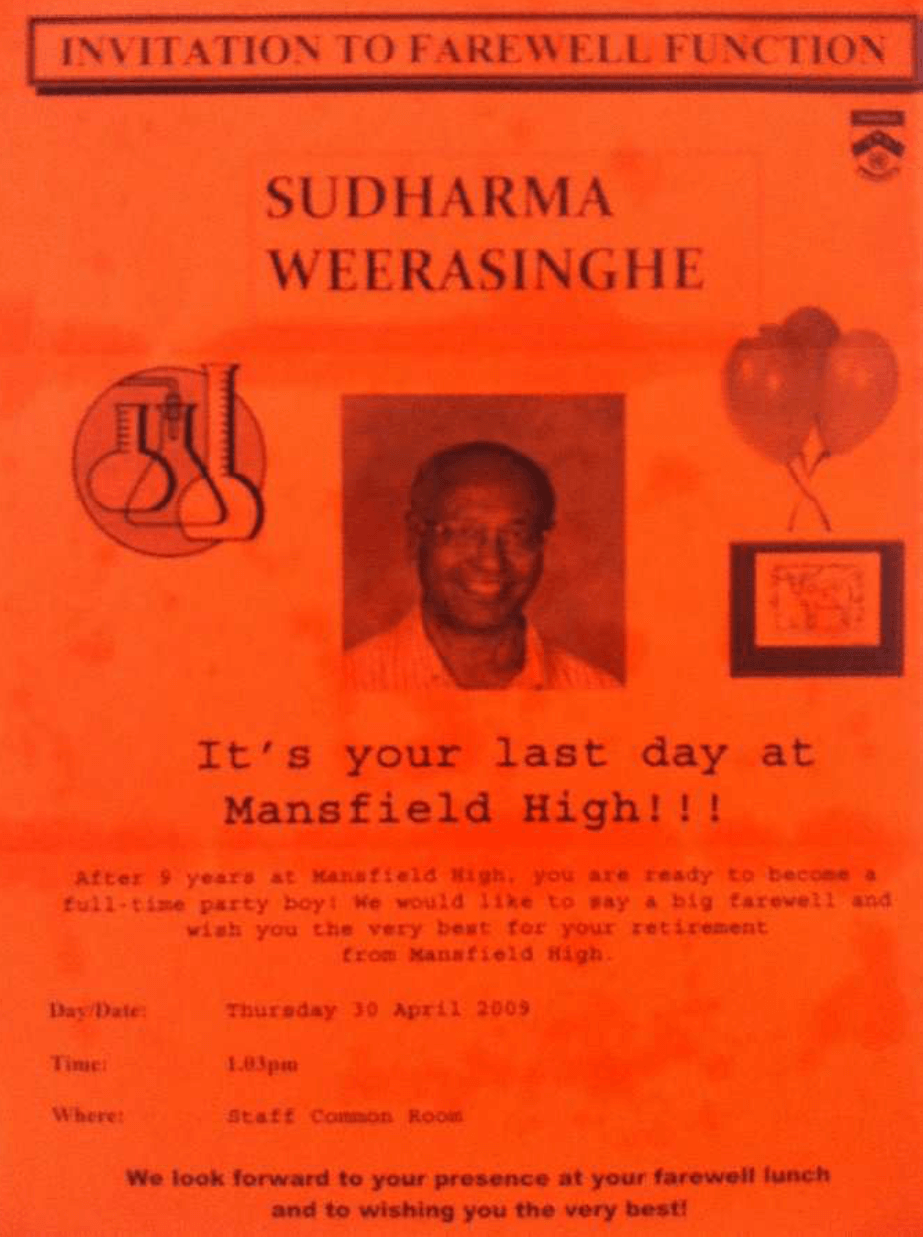 INVITATION TO FAREWELL FUNCTION
SUDHARMA
WEERASINGHE
It's your last day at
Mansfield High!!!
After 9 years at Mansfield High, you are ready to become a
full-time party boy! We would like to say a big farewell and
wish you the very best for your retirement
from Mansfield High.
Day/Date: Thursday 30 April 2009
Time: 1.03pm
Where: Staff Common Room
We look forward to your presence at your farewell lunch
and to wishing you the very best!